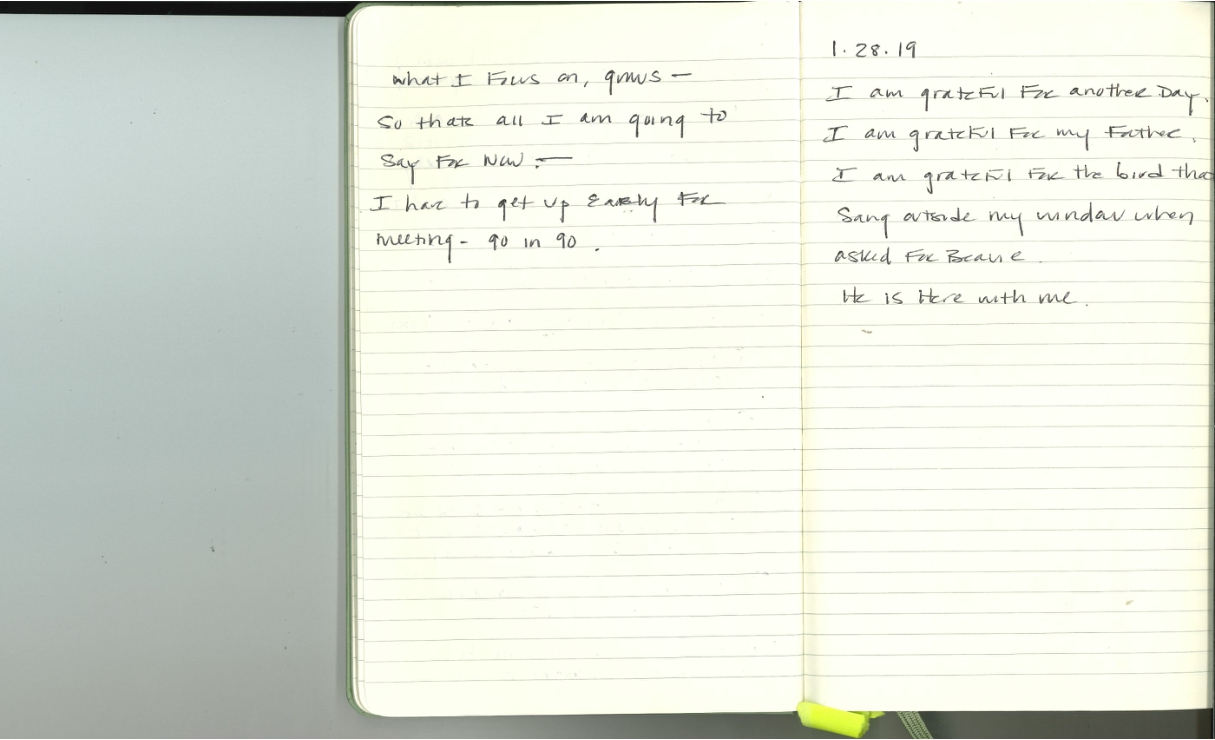 what I Focus on, grows —
So thats all I am going to
Say For Now. —
I have to get up Early For
meeting - 90 in 90 .
1. 28. 19
I am grateful For another Day.
I am grateful For my Father.
I am grateful For the bird tha
Sang outside my window when
asked For
He is Here with me.